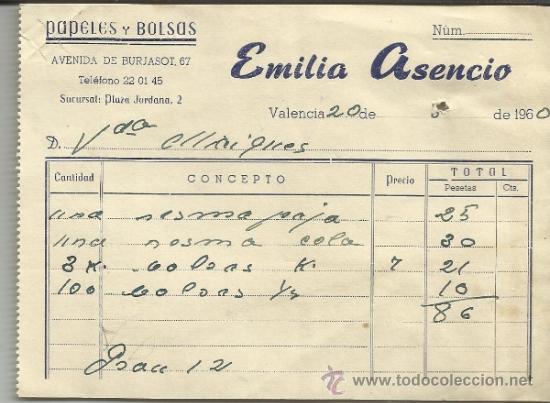 PAPELES Y BOLSAS
AVENIDA DE BURJASOT, 67
Teléfono 22 01 45
Sucursal: Plaza Jordana, 2
Núm.
Emilia Asencio
Valencia 20 de 5 de 1960
D. Vda
Cantidad CONCEPTO Precio TOTAL
Pesetas Cts.
una resma paja 25
una resma cola 30
3 K. bolsas K. 7 21
100 bolsas 10
86
12
www.todocoleccion.net